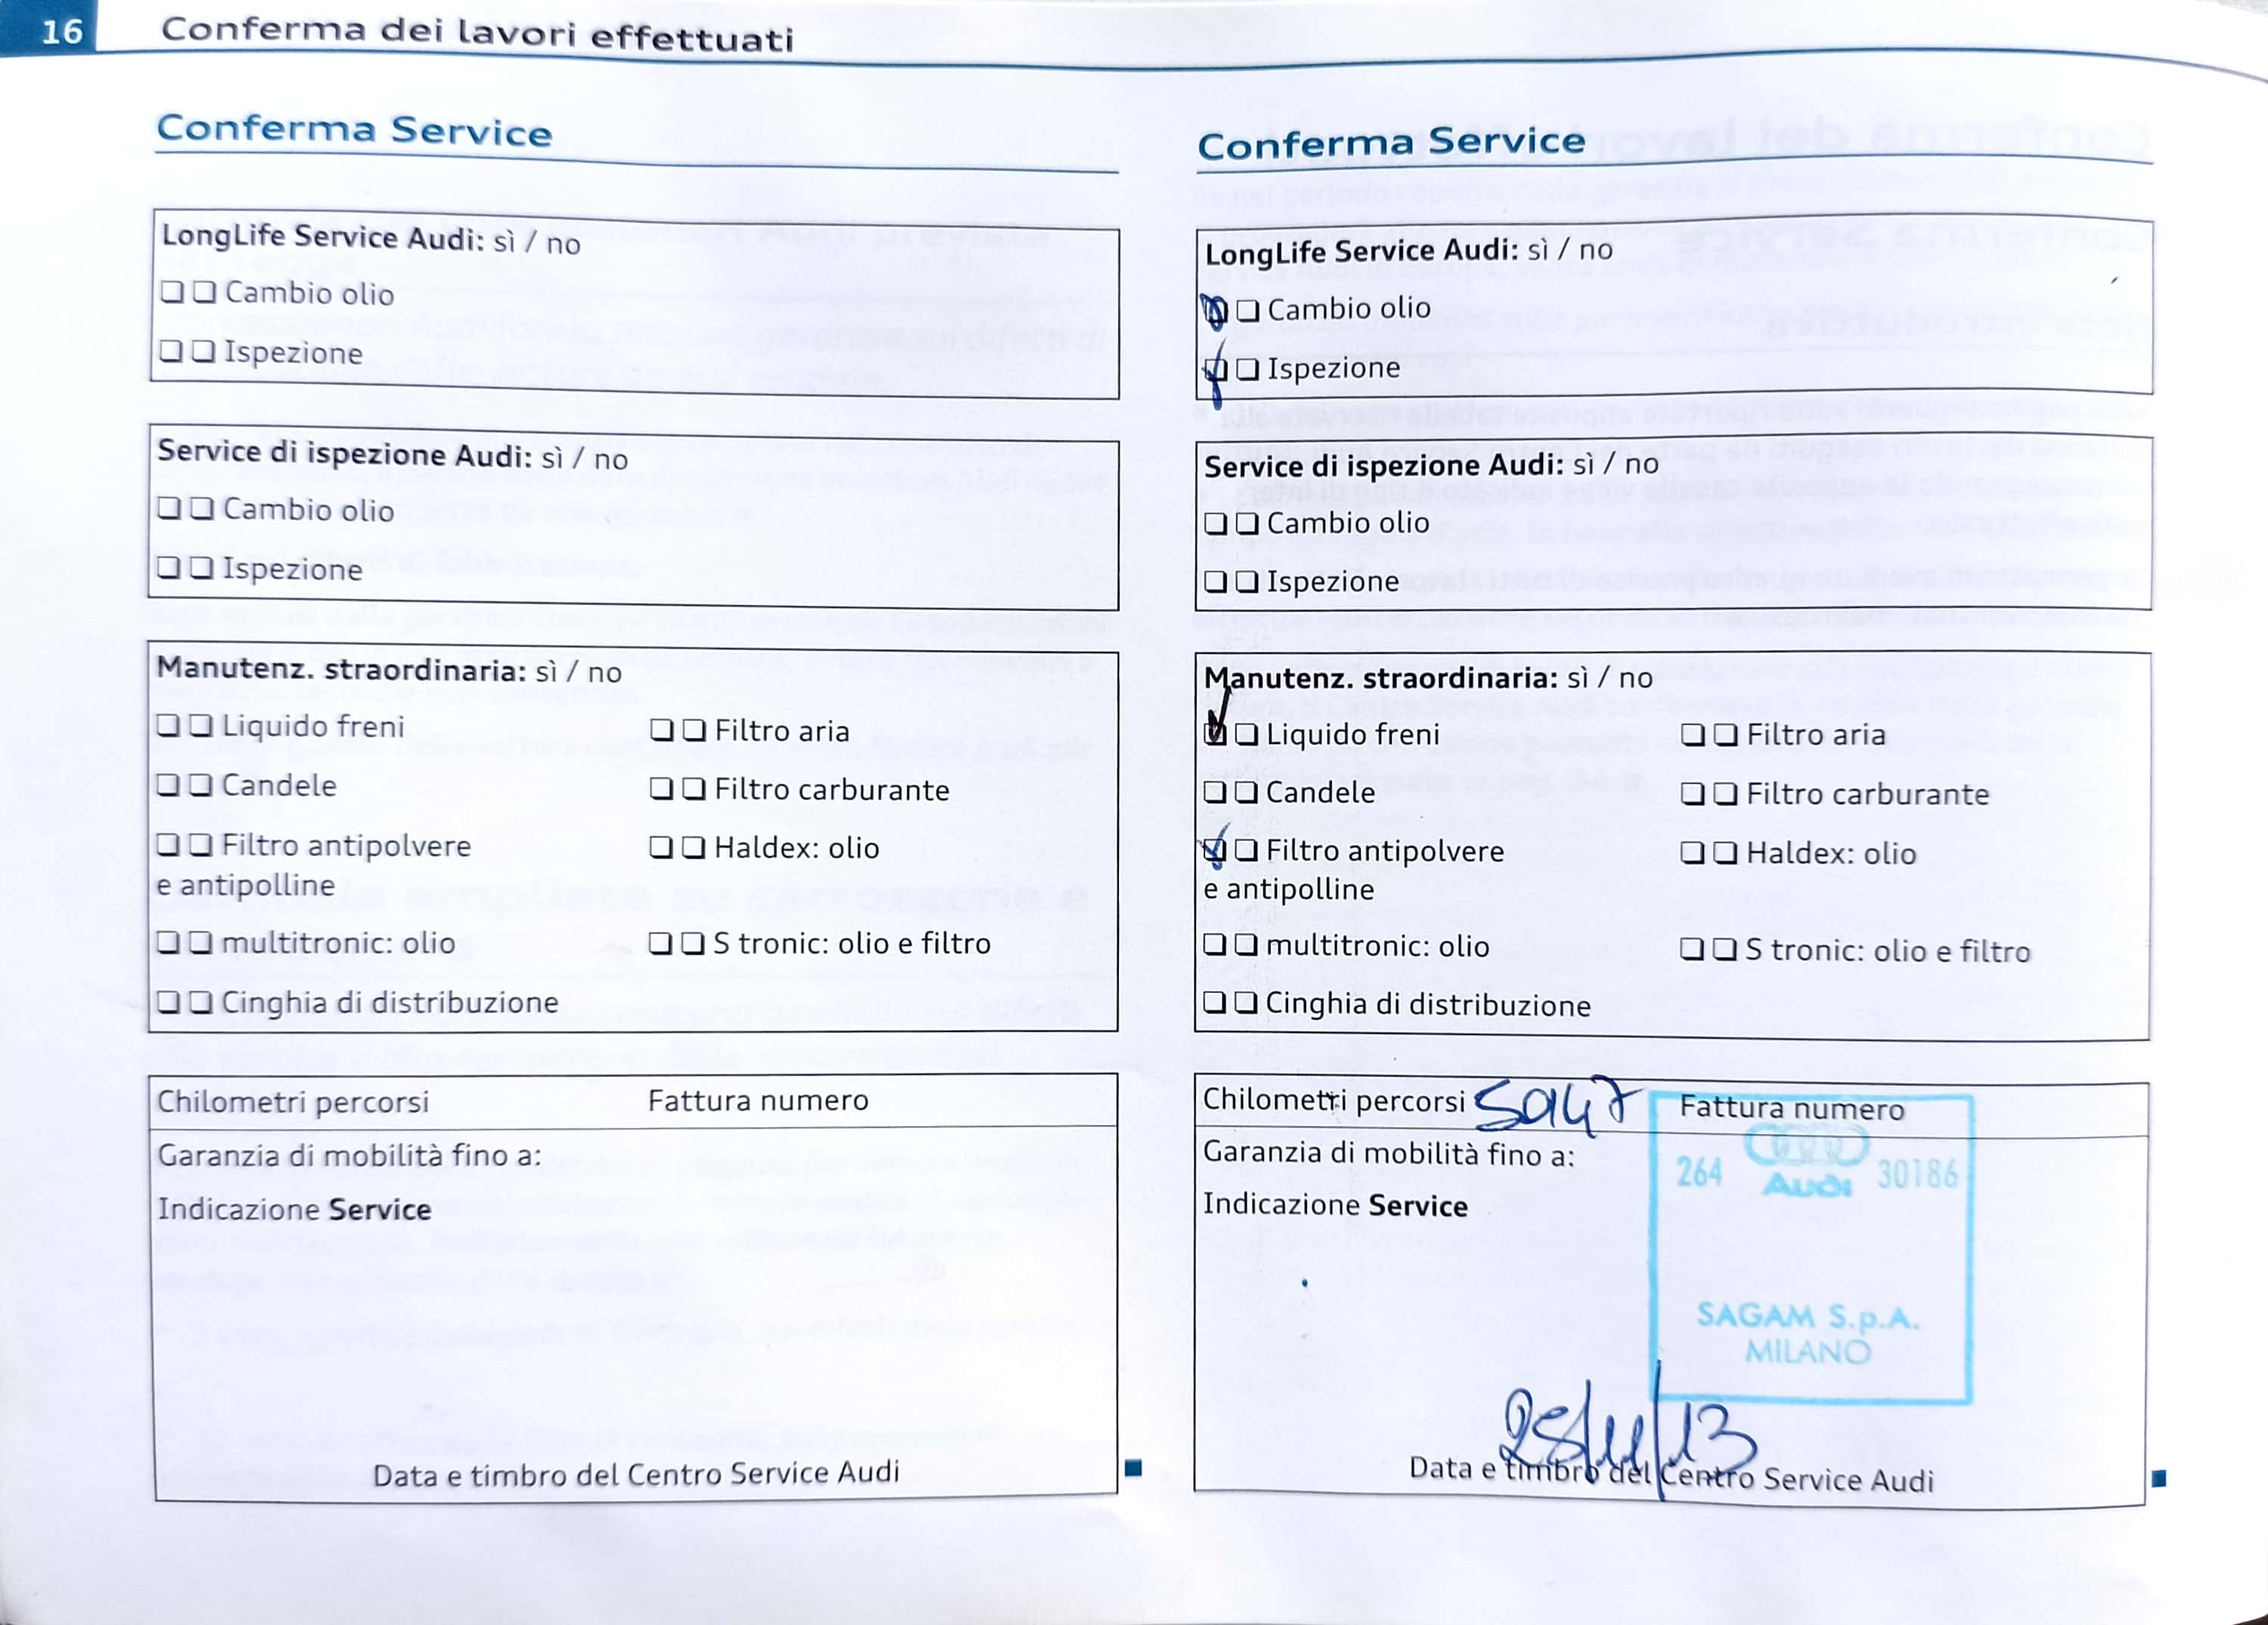 16 Conferma dei lavori effettuati
Conferma Service
LongLife Service Audi: sì / no
❑ ❑ Cambio olio
❑ ❑ Ispezione
Service di ispezione Audi: sì / no
❑ ❑ Cambio olio
❑ ❑ Ispezione
Manutenz. straordinaria: sì / no
❑ ❑ Liquido freni ❑ ❑ Filtro aria
❑ ❑ Candele ❑ ❑ Filtro carburante
❑ ❑ Filtro antipolvere ❑ ❑ Haldex: olio
e antipolline
❑ ❑ multitronic: olio ❑ ❑ S tronic: olio e filtro
❑ ❑ Cinghia di distribuzione
Chilometri percorsi Fattura numero
Garanzia di mobilità fino a:
Indicazione Service
Data e timbro del Centro Service Audi
Conferma Service
LongLife Service Audi: sì / no
❑ ❑ Cambio olio
❑ ❑ Ispezione
Service di ispezione Audi: sì / no
❑ ❑ Cambio olio
❑ ❑ Ispezione
Manutenz. straordinaria: sì / no
❑ ❑ Liquido freni ❑ ❑ Filtro aria
❑ ❑ Candele ❑ ❑ Filtro carburante
❑ ❑ Filtro antipolvere ❑ ❑ Haldex: olio
e antipolline
❑ ❑ multitronic: olio ❑ ❑ S tronic: olio e filtro
❑ ❑ Cinghia di distribuzione
Chilometri percorsi 50147 Fattura numero
Garanzia di mobilità fino a:
264 Audi 30186
Indicazione Service
SAGAM S.p.A.
MILANO
28/11/13
Data e timbro del Centro Service Audi